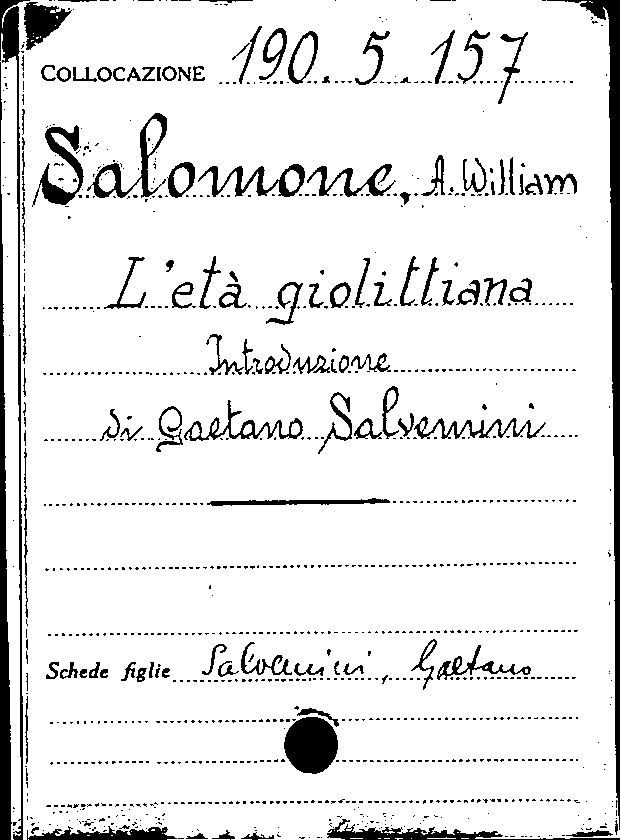 COLLOCAZIONE 190. 5. 157
Salomone, A. William
L'età giolittiana
Introduzione
di Gaetano Salvemini
Schede figlie Salvemini, Gaetano